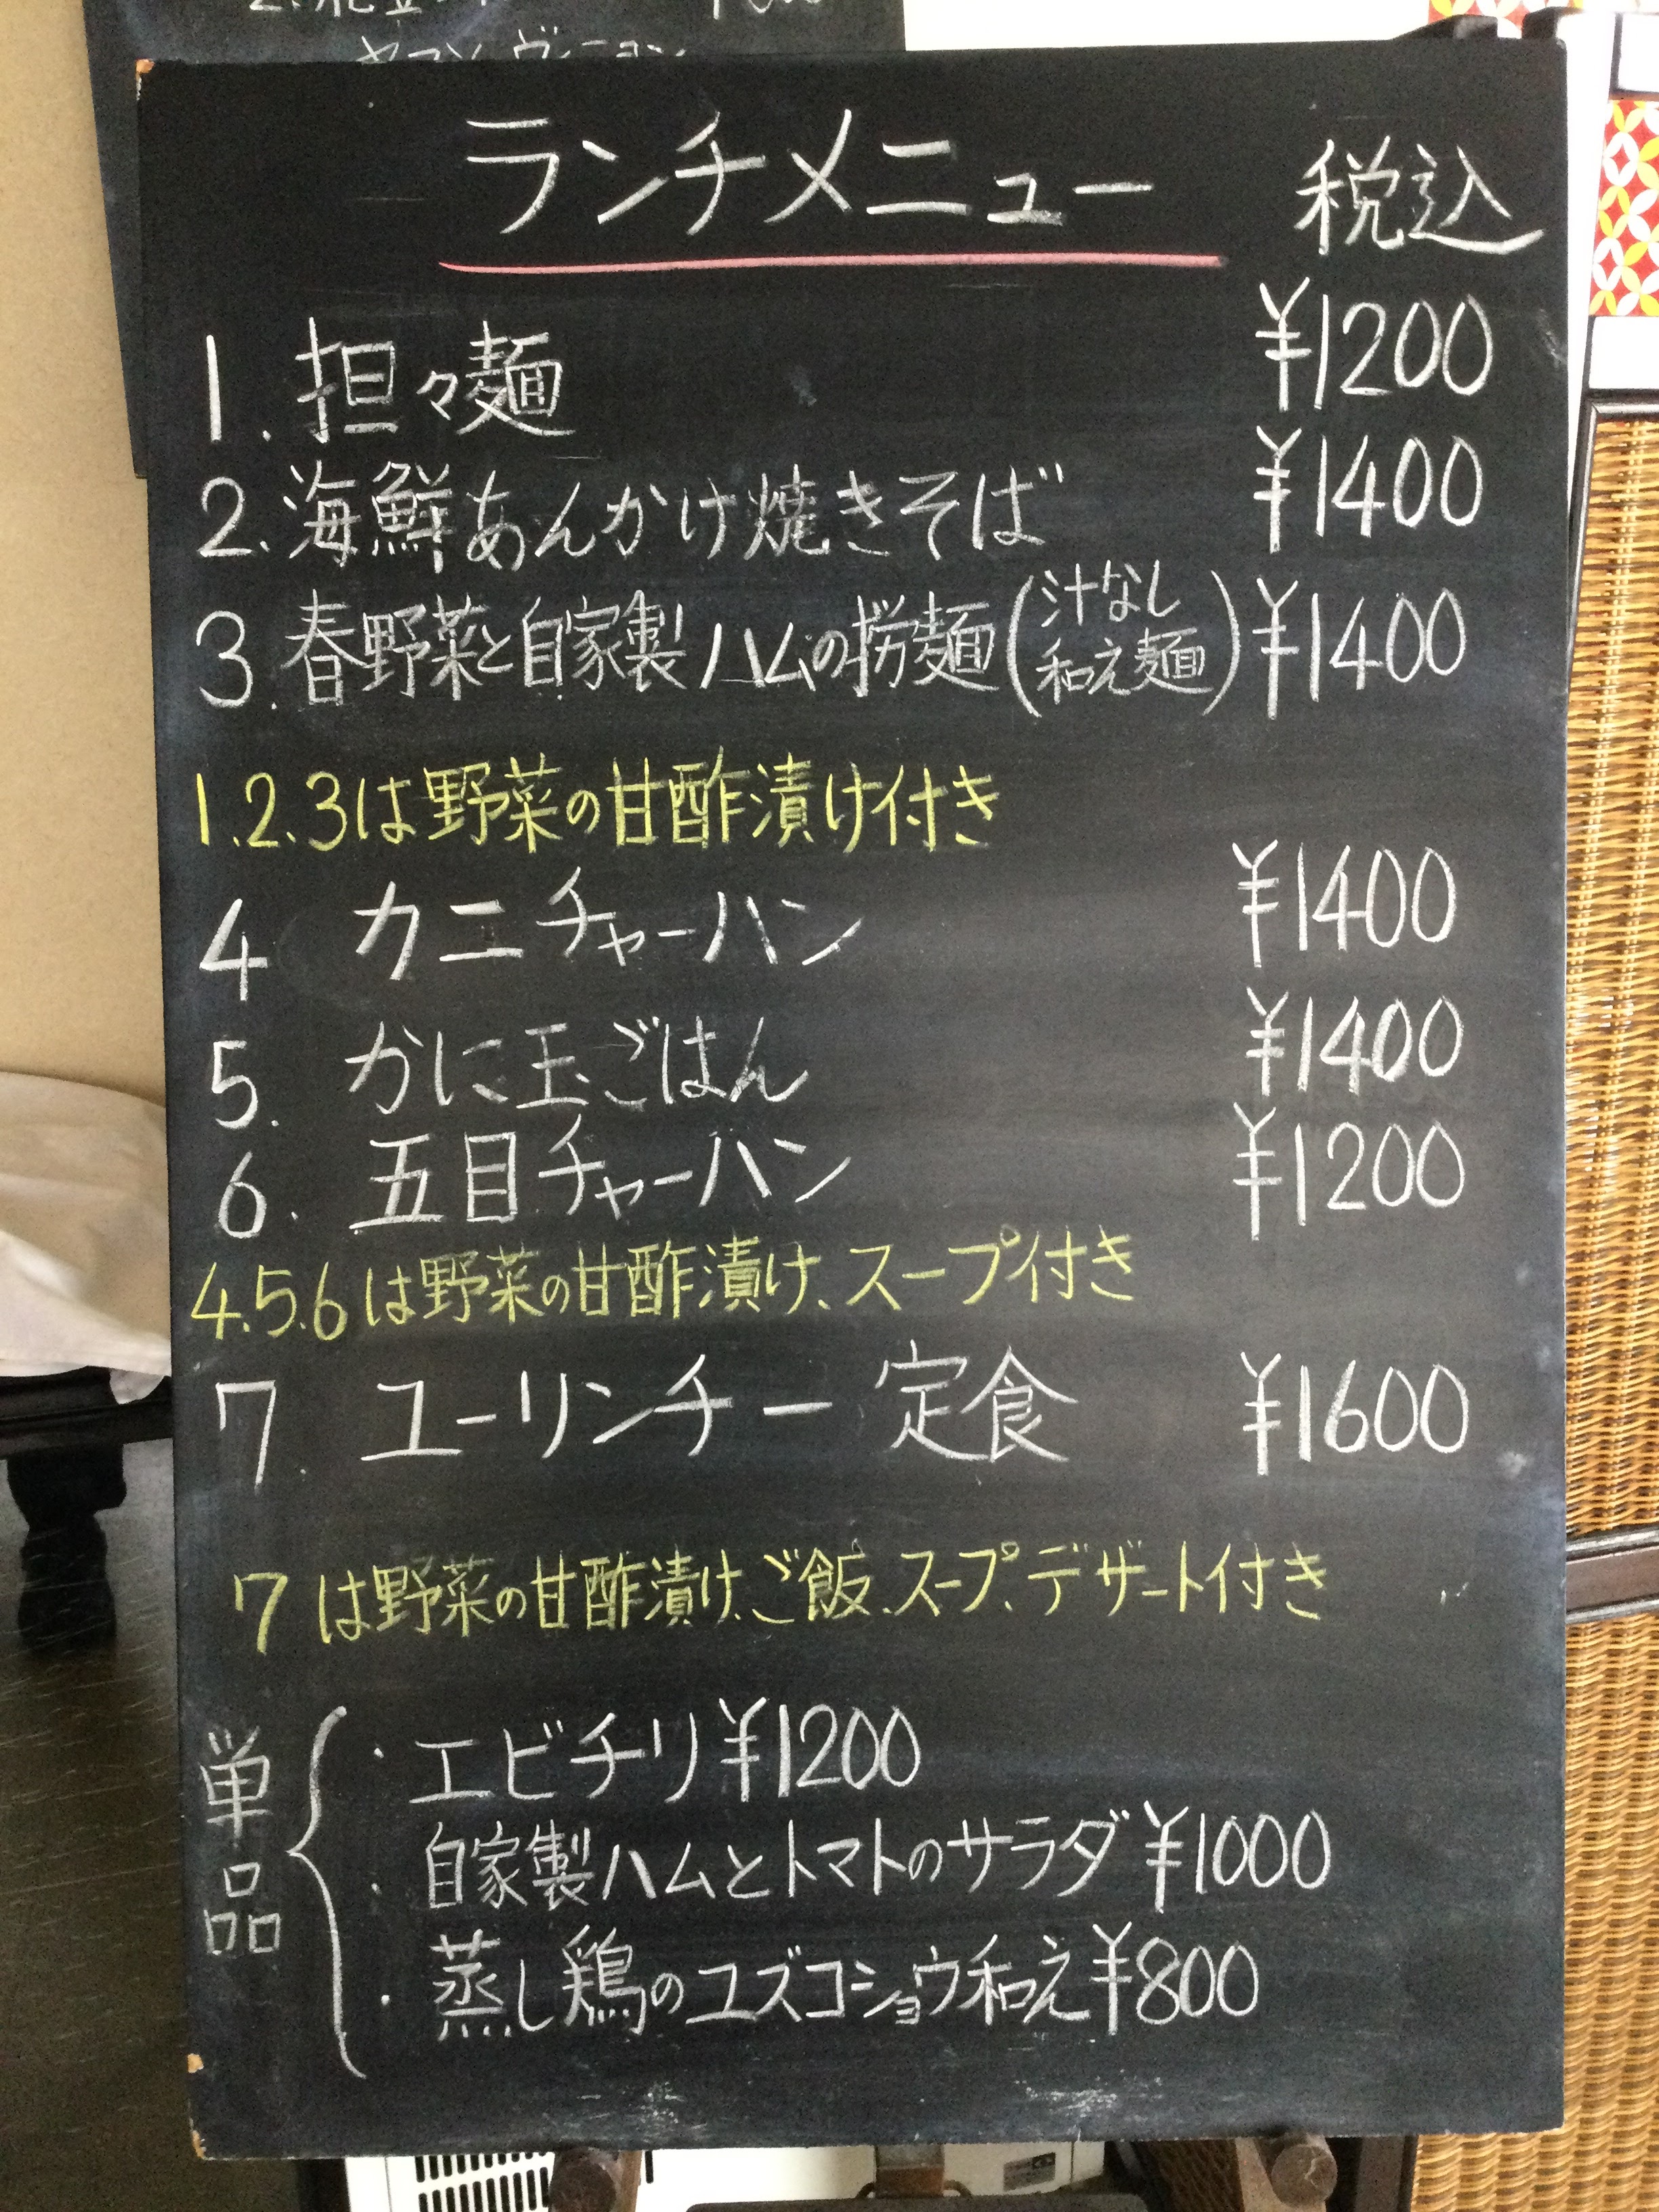 ランチメニュー 税込
1. 担々麺 ¥1200
2. 海鮮あんかけ焼きそば ¥1400
3. 春野菜と自家製ハムの撈麺(汁なし和え麺) ¥1400
1.2.3は野菜の甘酢漬け付き
4 カニチャーハン ¥1400
5. かに玉ごはん ¥1400
6. 五目チャーハン ¥1200
4.5.6は野菜の甘酢漬け、スープ付き
7. ユーリンチー定食 ¥1600
7は野菜の甘酢漬け、ご飯、スープ、デザート付き
単品
・エビチリ ¥1200
・自家製ハムとトマトのサラダ ¥1000
・蒸し鶏のユズコショウ和え ¥800